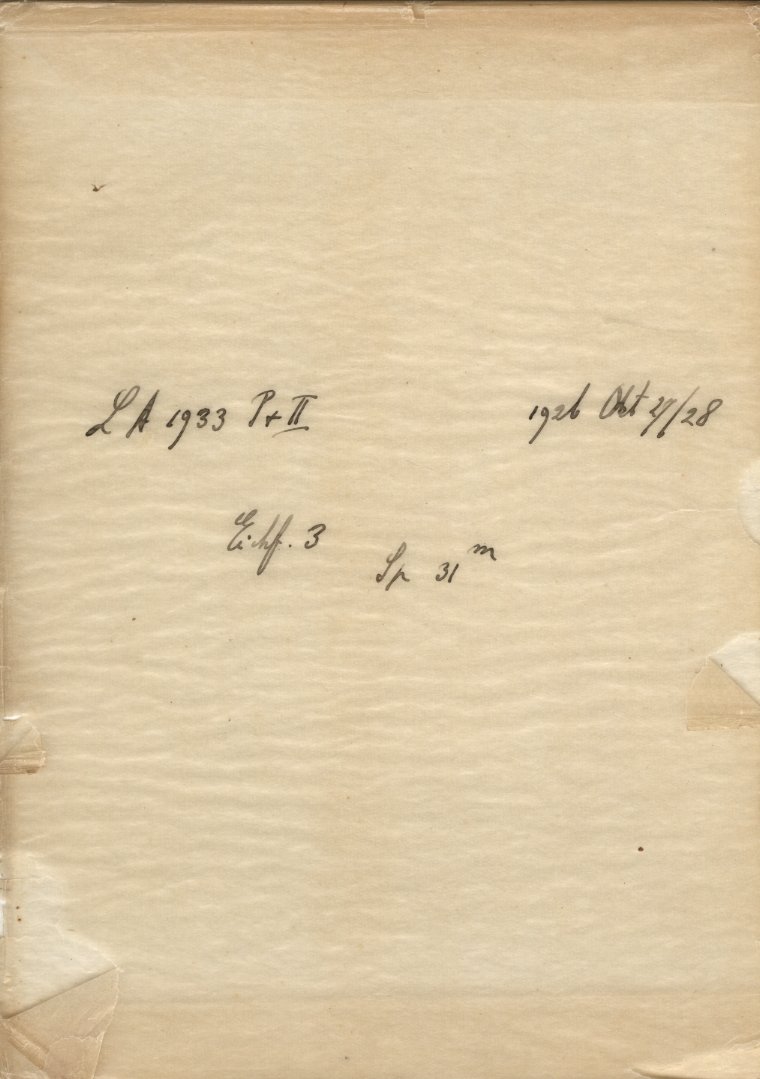 LA 1933 P+II 1926 Okt 27/28
Eichf. 3
Sp 31 m